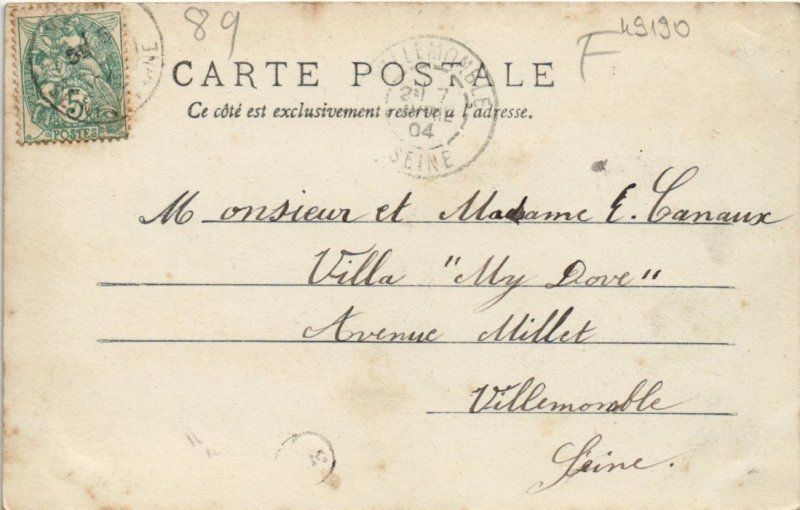 89
F 49190
5
POSTES
VILLEMOMBLE
04
SEINE
CARTE POSTALE
Ce côté est exclusivement réservé à l'adresse.
Monsieur et Madame E. Canaux
Villa "My Dove"
Avenue Millet
Villemomble
Seine.